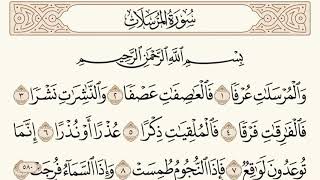 سُورَةُ المُرْسَلَاتِ
بِسْمِ ٱللَّهِ ٱلرَّحْمَٰنِ ٱلرَّحِيمِ
وَٱلْمُرْسَلَٰتِ عُرْفًا ١ فَٱلْعَٰصِفَٰتِ عَصْفًا ٢ وَٱلنَّٰشِرَٰتِ نَشْرًا ٣
فَٱلْفَٰرِقَٰتِ فَرْقًا ٤ فَٱلْمُلْقِيَٰتِ ذِكْرًا ٥ عُذْرًا أَوْ نُذْرًا ٦ إِنَّمَا
تُوعَدُونَ لَوَٰقِعٌ ٧ فَإِذَا ٱلنُّجُومُ طُمِسَتْ ٨ وَإِذَا ٱلسَّمَآءُ فُرِجَتْ
٥٨٠